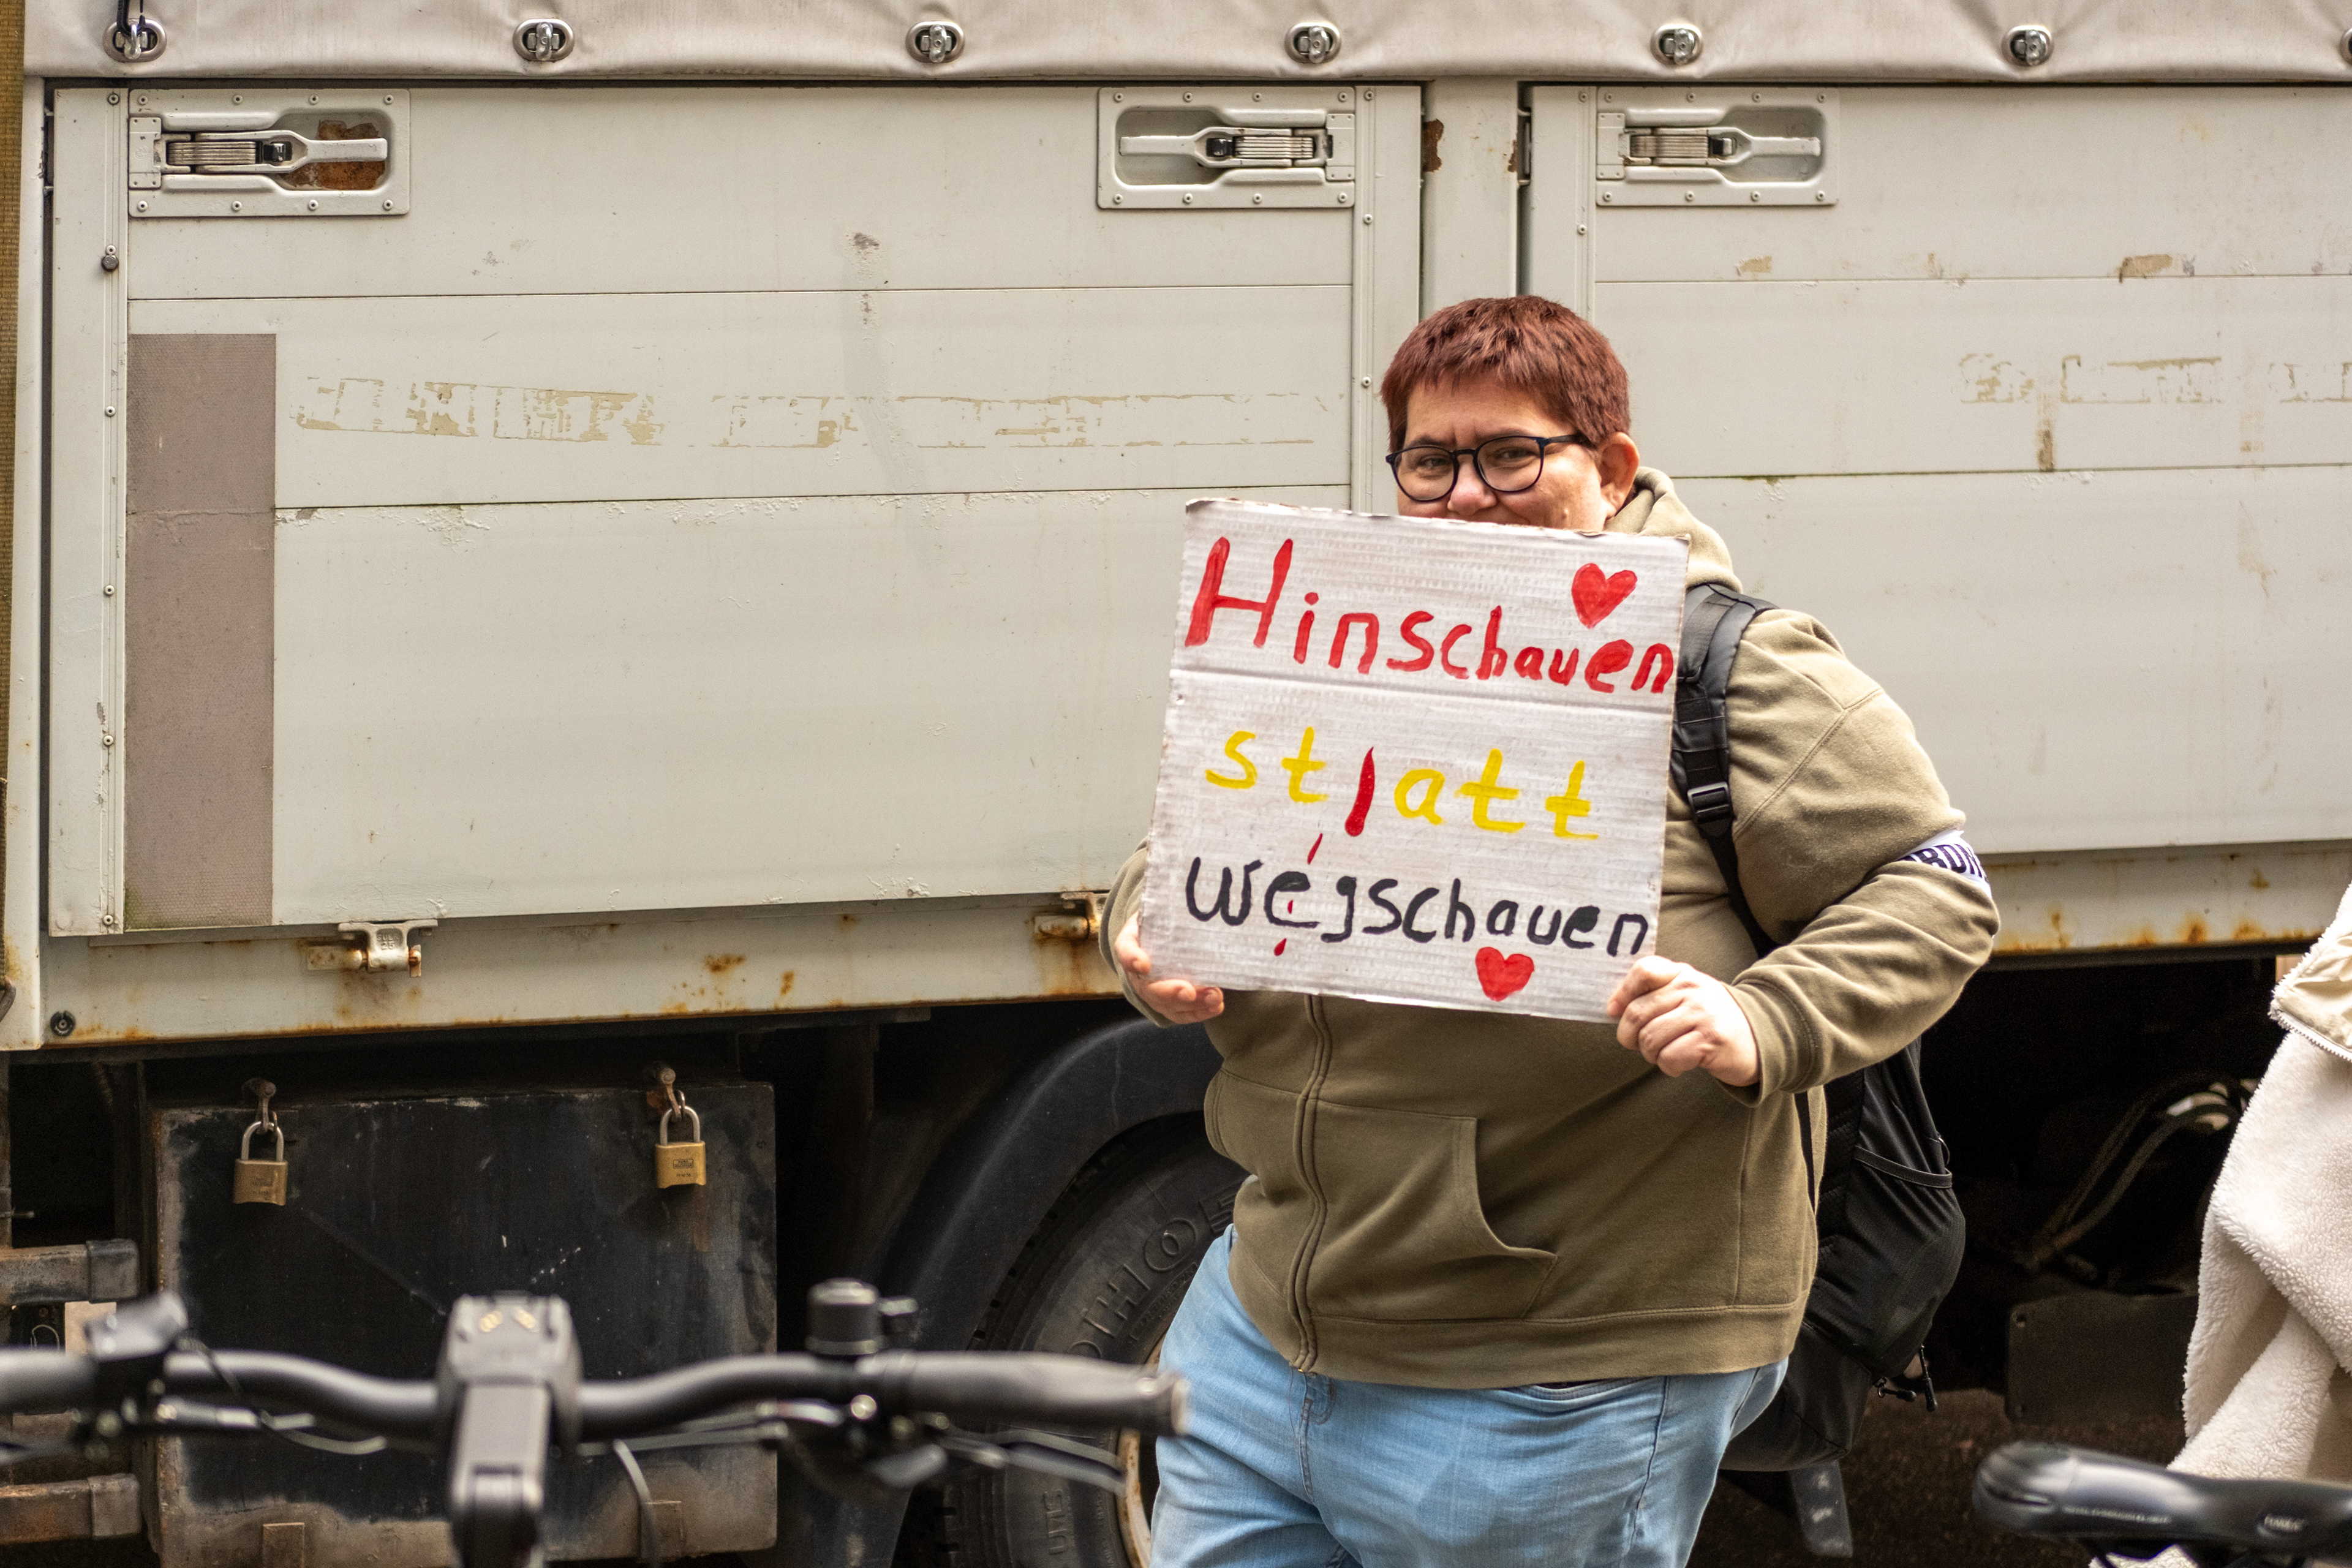 Hinschauen
statt
wegschauen